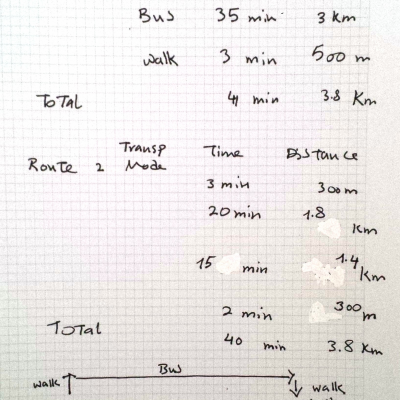 Bus 35 min 3 Km
walk 3 min 500 m
TOTAL 41 min 3.8 Km
Transp Time Distance
Route 2 Mode
3 min 300 m
20 min 1.8 Km
15 min 1.4 Km
2 min 300 m
TOTAL 40 min 3.8 Km
Bus
walk walk